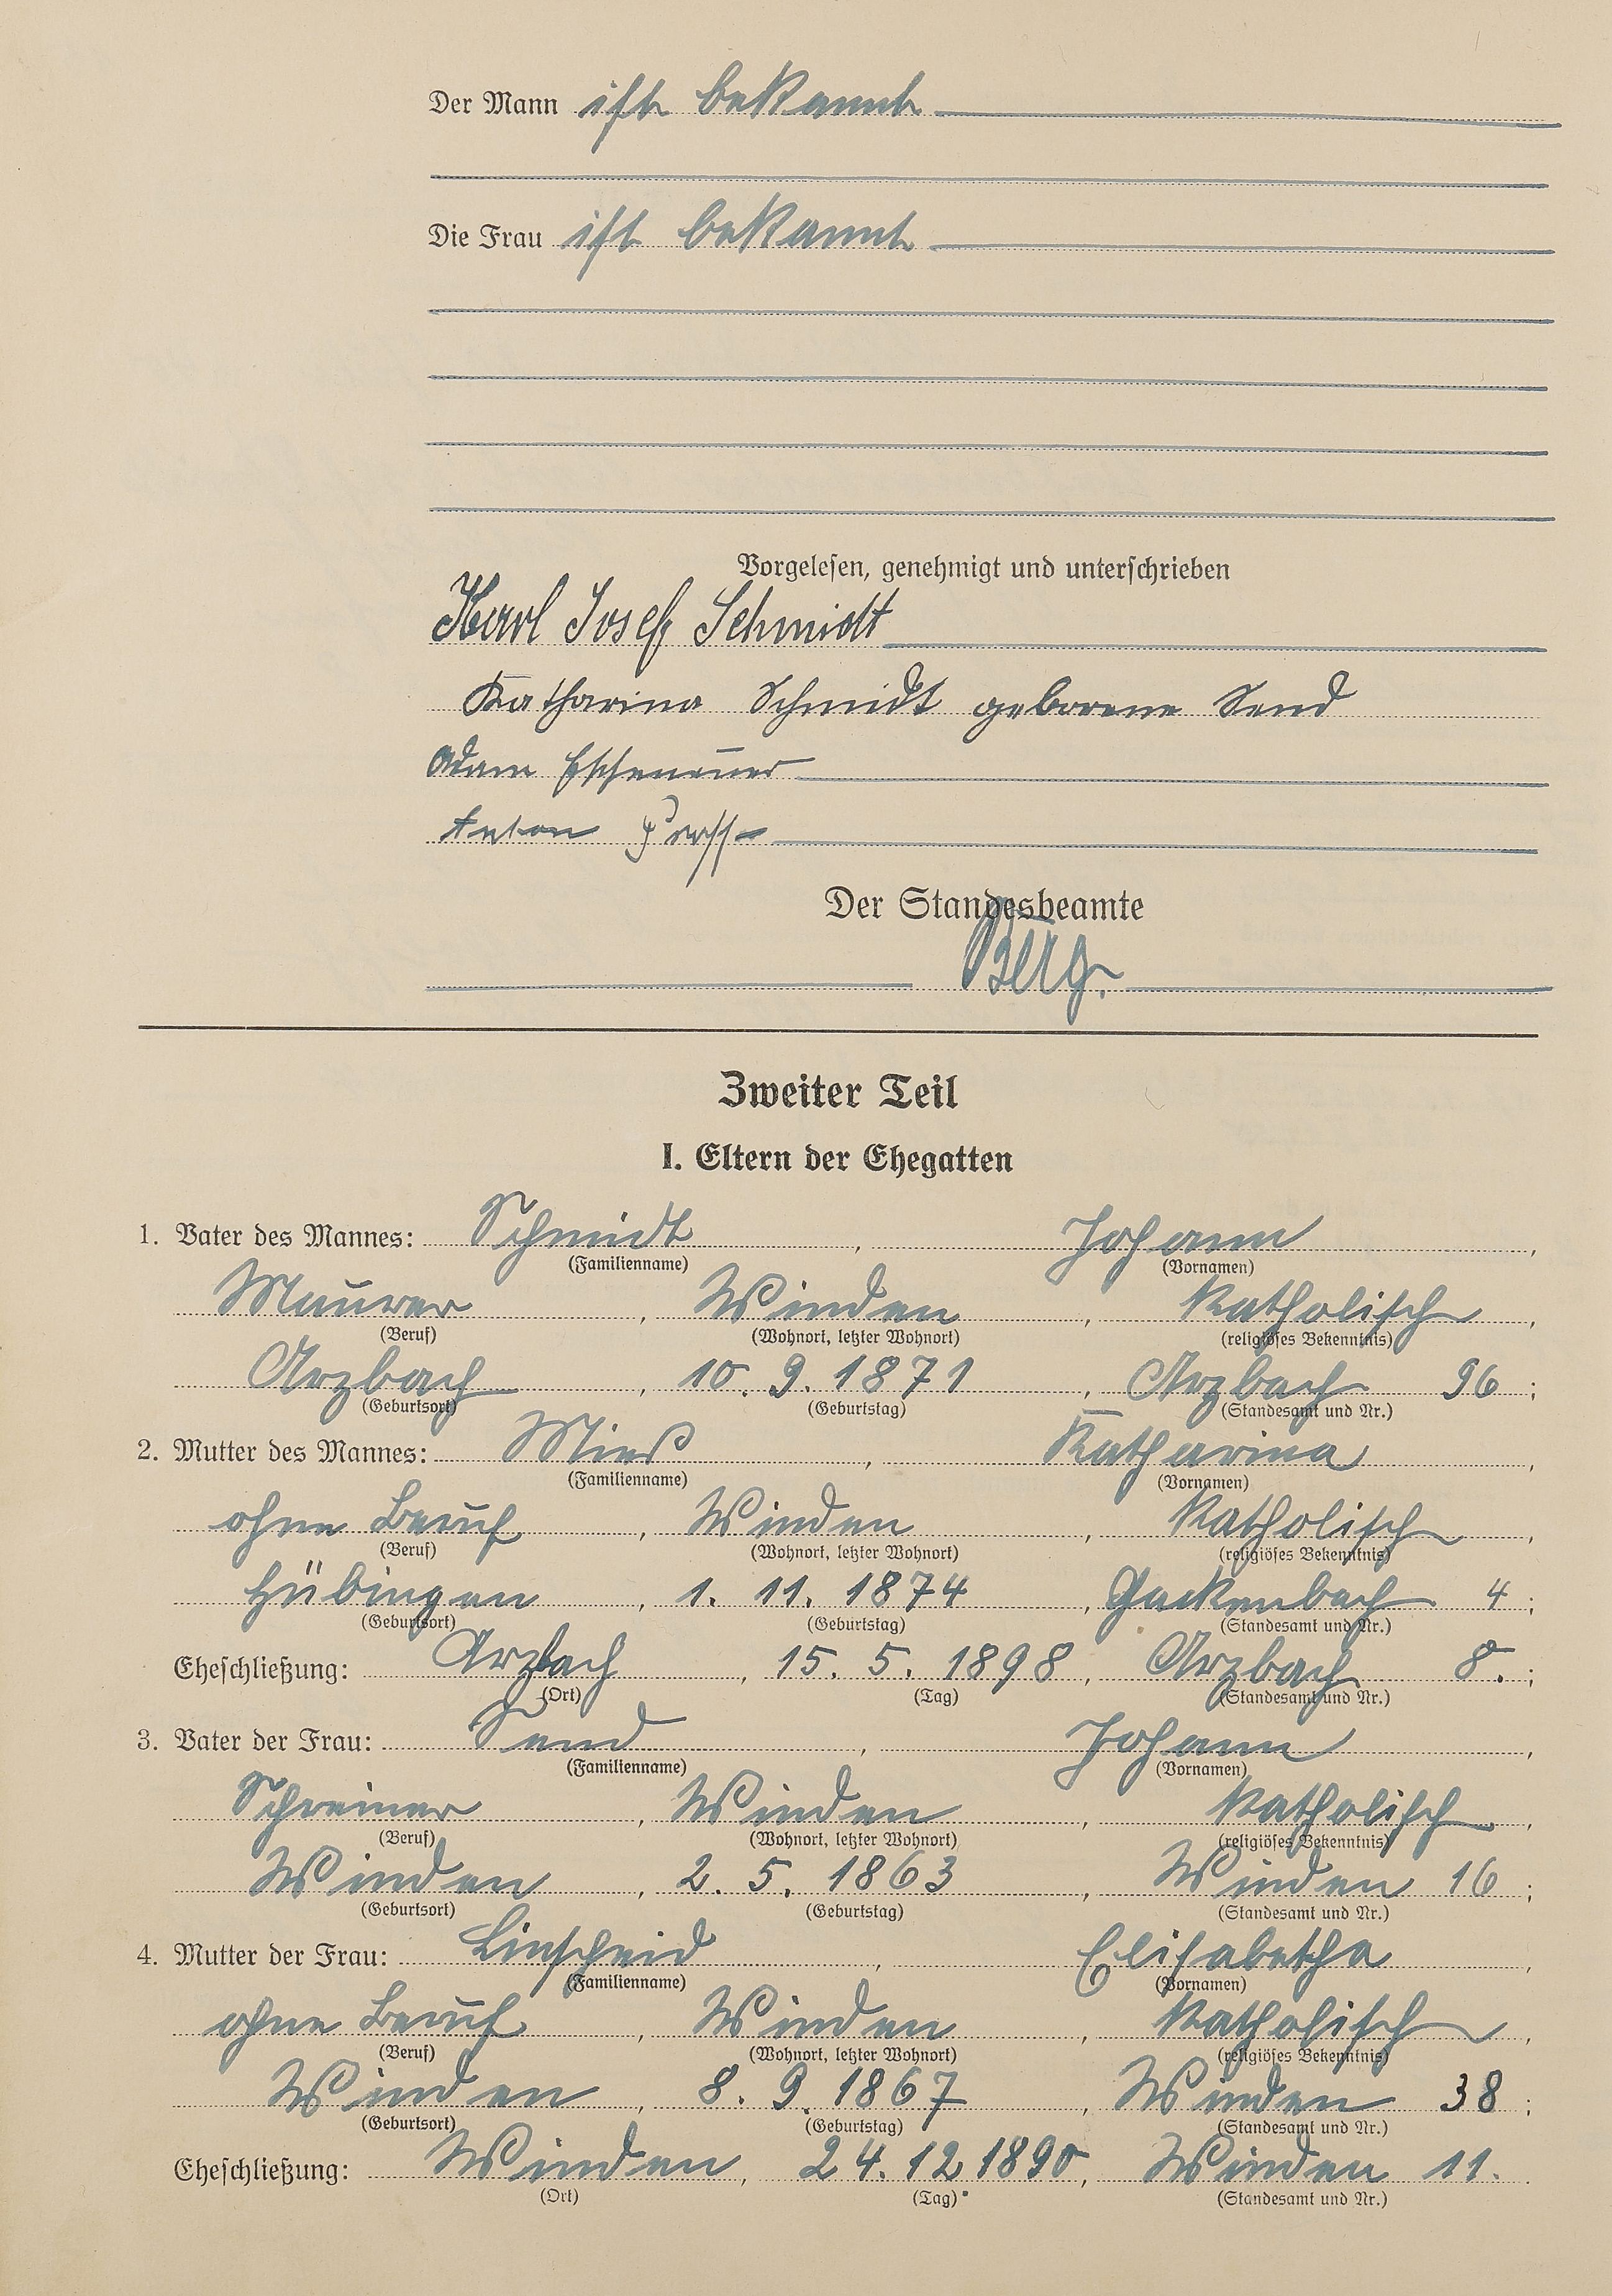 Der Mann ist bekannt
Die Frau ist bekannt
Vorgelesen, genehmigt und unterschrieben
Karl Josef Schmidt
Katharina Schmidt geborene Send
Adam Eschenauer
Anton
Der Standesbeamte
Berg.
Zweiter Teil
I. Eltern der Ehegatten
1. Vater des Mannes: Schmidt, Johann,
(Familienname) (Vornamen)
Maurer, Winden, katholisch,
(Beruf) (Wohnort, letzter Wohnort) (religiöses Bekenntnis)
Arzbach, 10. 9. 1871, Arzbach 96;
(Geburtsort) (Geburtstag) (Standesamt und Nr.)
2. Mutter des Mannes: , Katharina,
(Familienname) (Vornamen)
ohne Beruf, Winden, katholisch,
(Beruf) (Wohnort, letzter Wohnort) (religiöses Bekenntnis)
Hübingen, 1. 11. 1874, Gackenbach 4;
(Geburtsort) (Geburtstag) (Standesamt und Nr.)
Eheschließung: Arzbach, 15. 5. 1898, Arzbach 8.;
(Ort) (Tag) (Standesamt und Nr.)
3. Vater der Frau: Send, Johann,
(Familienname) (Vornamen)
Schreiner, Winden, katholisch,
(Beruf) (Wohnort, letzter Wohnort) (religiöses Bekenntnis)
Winden, 2. 5. 1863, Winden 16;
(Geburtsort) (Geburtstag) (Standesamt und Nr.)
4. Mutter der Frau: Linscheid, Elisabetha,
(Familienname) (Vornamen)
ohne Beruf, Winden, katholisch,
(Beruf) (Wohnort, letzter Wohnort) (religiöses Bekenntnis)
Winden, 8. 9. 1867, Winden 38;
(Geburtsort) (Geburtstag) (Standesamt und Nr.)
Eheschließung: Winden, 24. 12 1890, Winden 11.
(Ort) (Tag) (Standesamt und Nr.)